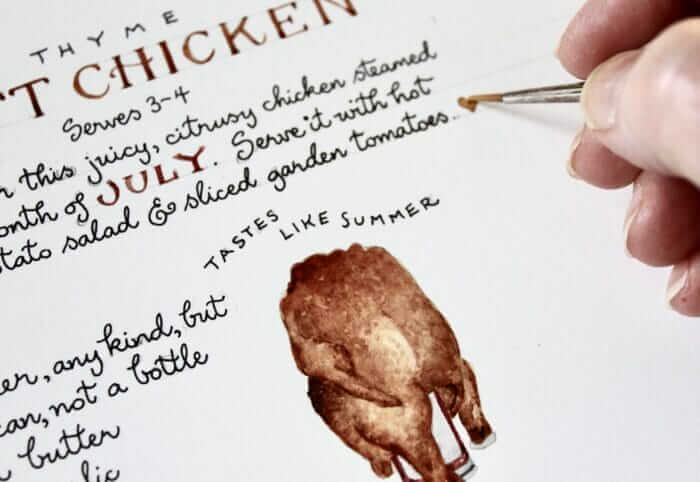 THYME
T CHICKEN
Serves 3-4
this juicy, citrusy chicken steamed
onth of JULY. Serve it with hot
tato salad & sliced garden tomatoes.
TASTES LIKE SUMMER
er, any kind, but
can, not a bottle
butter
lic